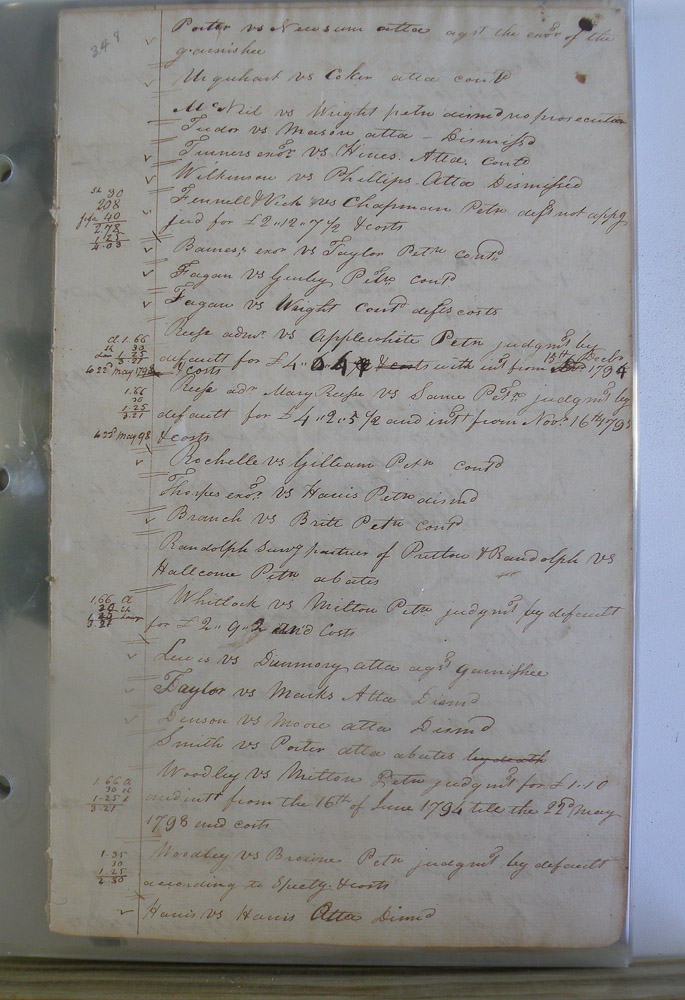 348
Porter vs Newsum atta agst the exor of the
garnishee
Urquhart vs Coker atta contd
McNeil vs Wright petn dismd no prosecution
Tudor vs Mason atta - Dismissd
Turners exor vs Hines. Atta. contd
Wilkinson vs Phillips Atta Dismissed
sh 30
208
fifa 40
2.78
1.25
4.03
Fennell & Vick vs Chapman Petn deft not appg
jud for £2..12..7 1/2 & costs
Baines's exor vs Taylor Petn contd
Fagan vs Gurley Petn contd
Fagan vs Wright Contd defts costs
Cl 1.66
sh 30
1.25
3.21
22d May 1798
Reese admr vs Applewhite Petn judgmt by
default for £4.. & costs with int from 15th Decbr 1794
& costs
1.66
30
1.25
3.21
22d May 98
Reese adr Mary Reese vs Same Petn judgmt by
default for £4..2..5 1/2 and int from Novr 16th 179
& costs
Rochelle vs Gilliam Petn contd
Thorpes exor vs Haris Petn dismd
Branch vs Britt Petn contd
Randolph Survg partner of Pretton & Randolph vs
Hallcome Petn abates
1.66 Cl
30 sh
1.25
3.21
Whitlock vs Milton Petn judgmt by default
for £2..9..2 and Costs
Lewis vs Dunmory atta agst garnishee
Taylor vs Marks Atta Dismd
Denson vs Moore atta Dismd
Smith vs Porter atta abates by death
1.66 Cl
30 sh
1.25
3.21
Woodley vs Milton Petn judgmt for £1.10
and int from the 16th of June 1794 till the 22d May
1798 and costs
1.35
30
1.25
2.80
Woodley vs Browne Petn judgmt by default
according to Specty. & costs
Haris vs Haris Atta Dismd